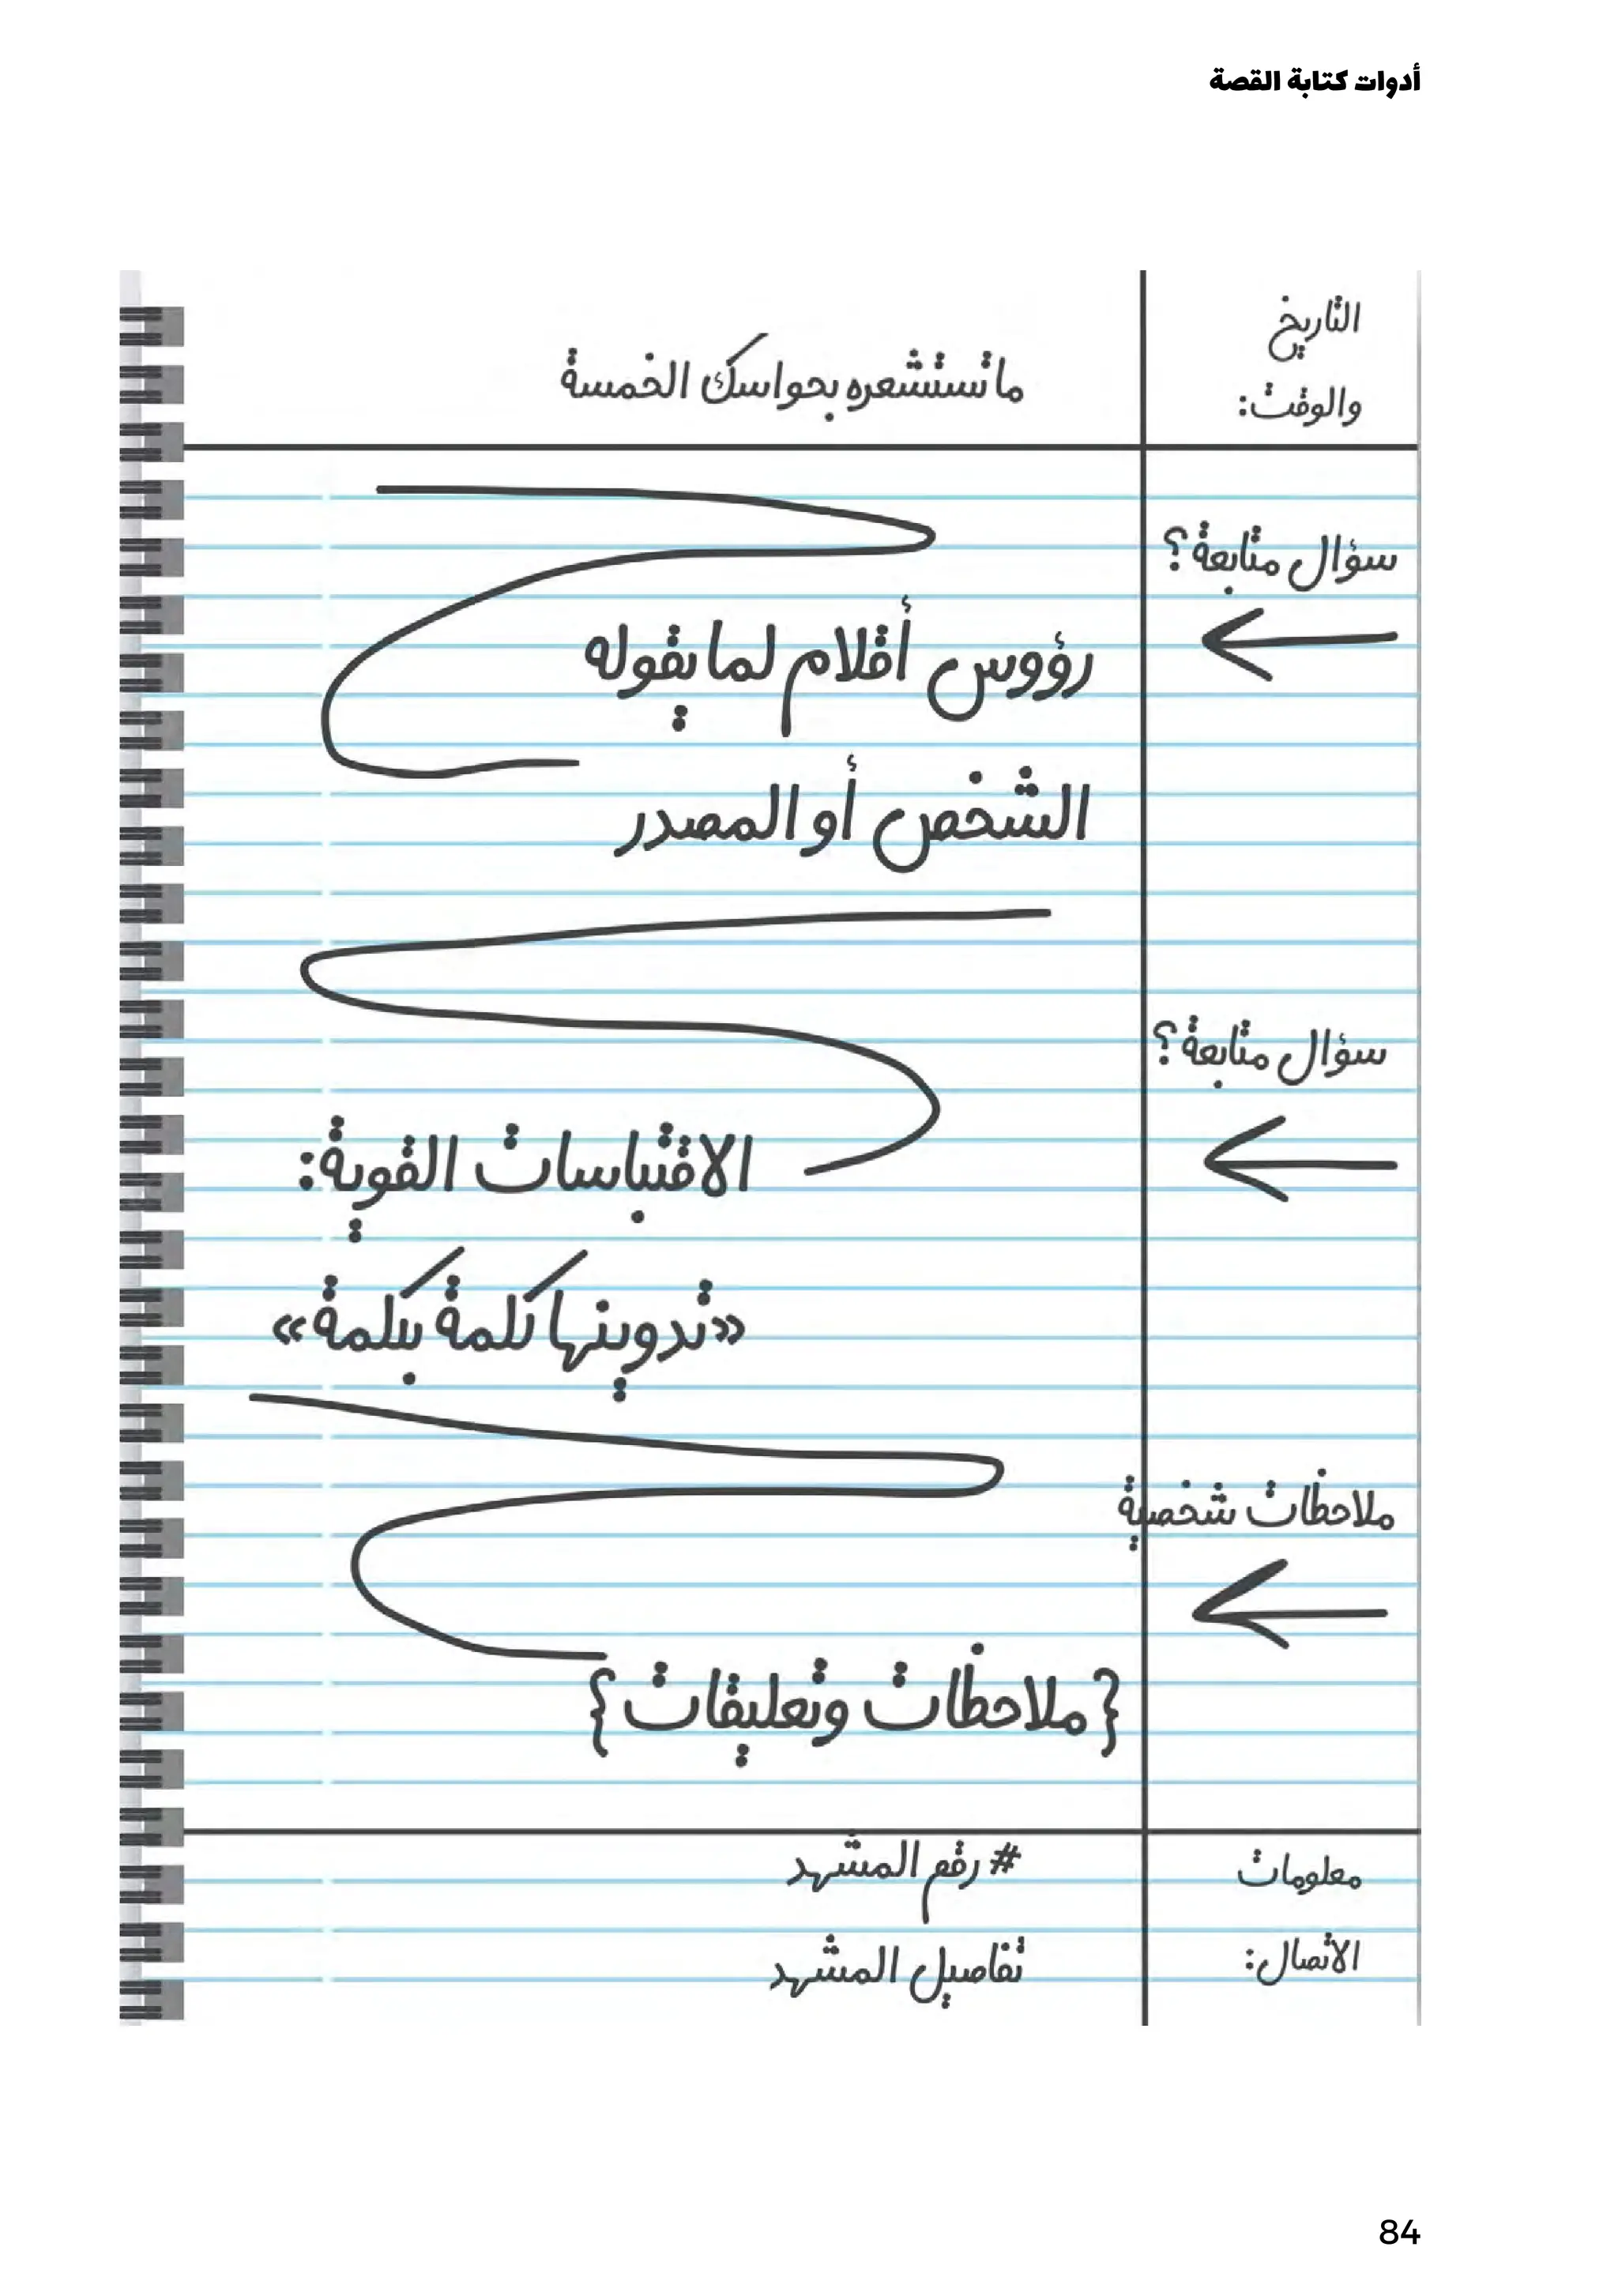 أدوات كتابة القصة
التاريخ
والوقت:
ما تستشعره بحواسك الخمسة
سؤال متابعة؟
رؤوس أقلام لما يقوله
الشخص أو المصدر
سؤال متابعة؟
الاقتباسات القوية:
«تدوينها كلمة بكلمة»
ملاحظات شخصية
{ملاحظات وتعليقات}
معلومات
الاتصال:
# رقم المشهد
تفاصيل المشهد
84